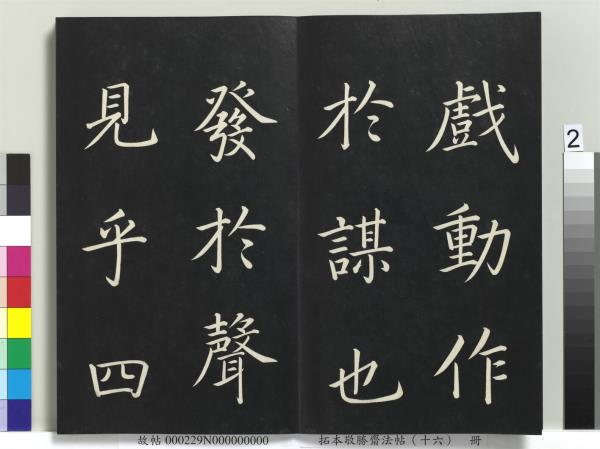 戲動作
於謀也
發於聲
見乎四
2
故帖000229N000000000 拓本敬勝齋法帖（十六） 冊